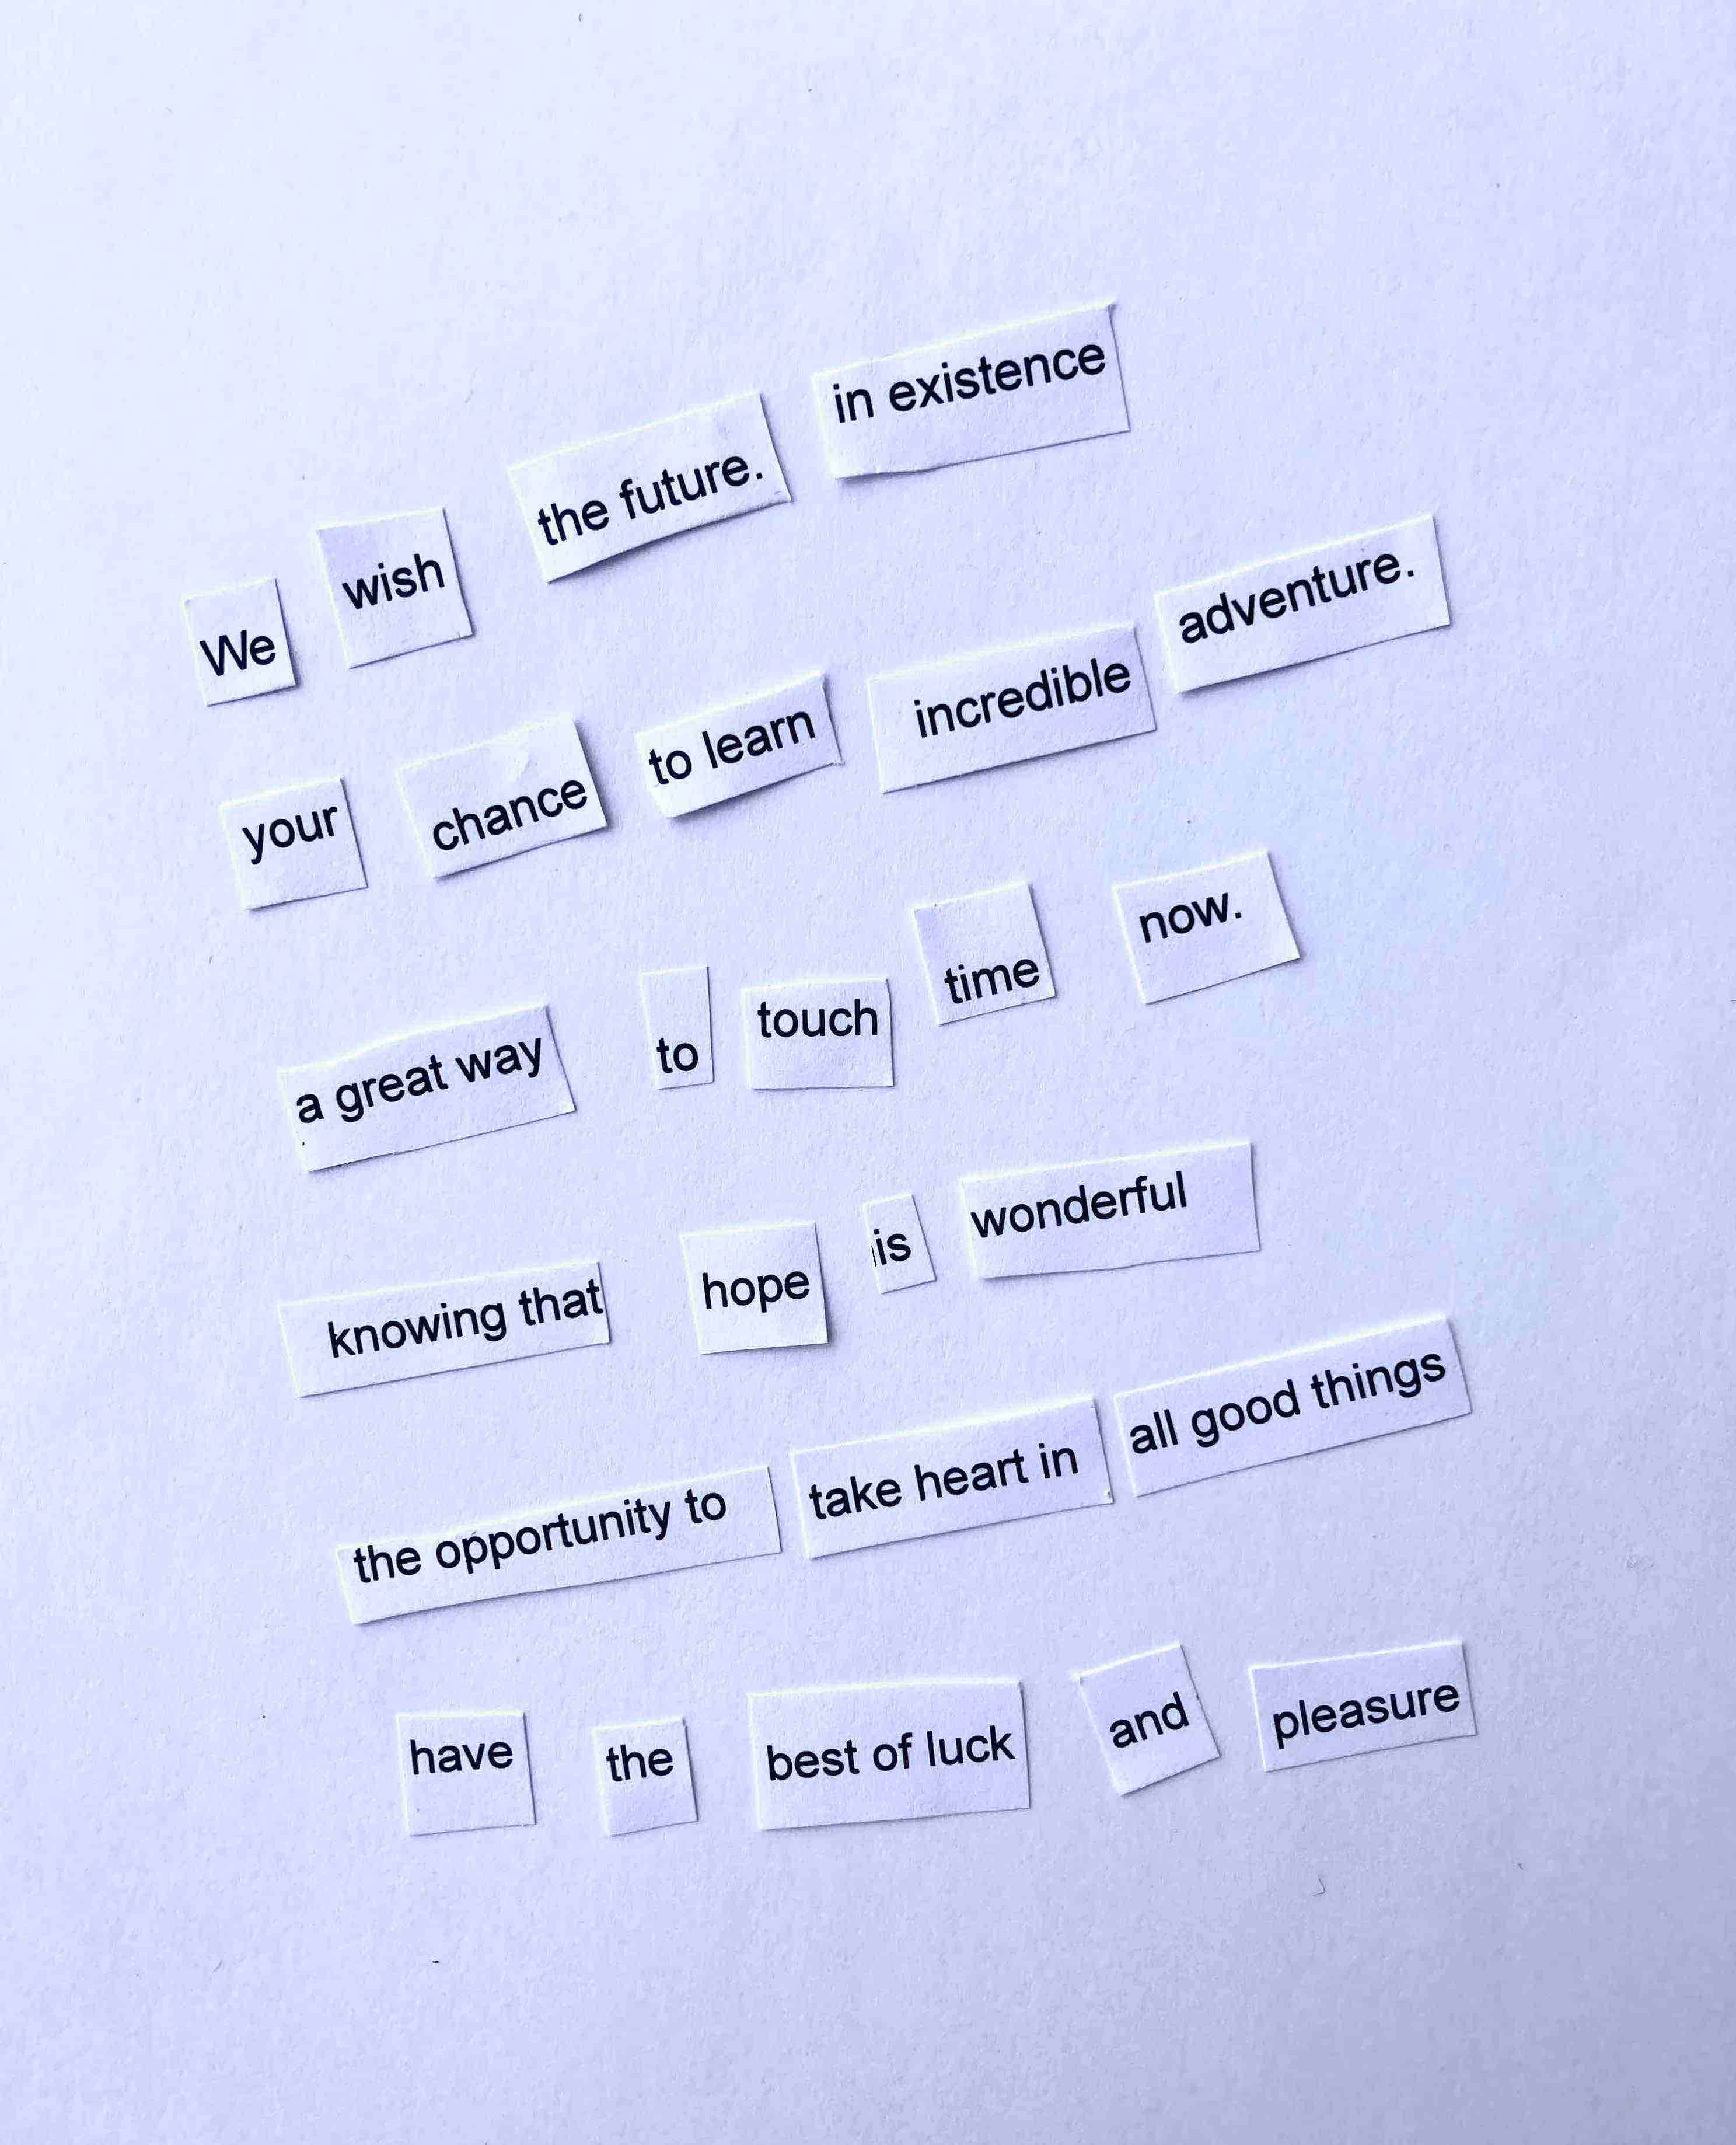 We wish the future. in existence
your chance to learn incredible adventure.
a great way to touch time now.
knowing that hope is wonderful
the opportunity to take heart in all good things
have the best of luck and pleasure